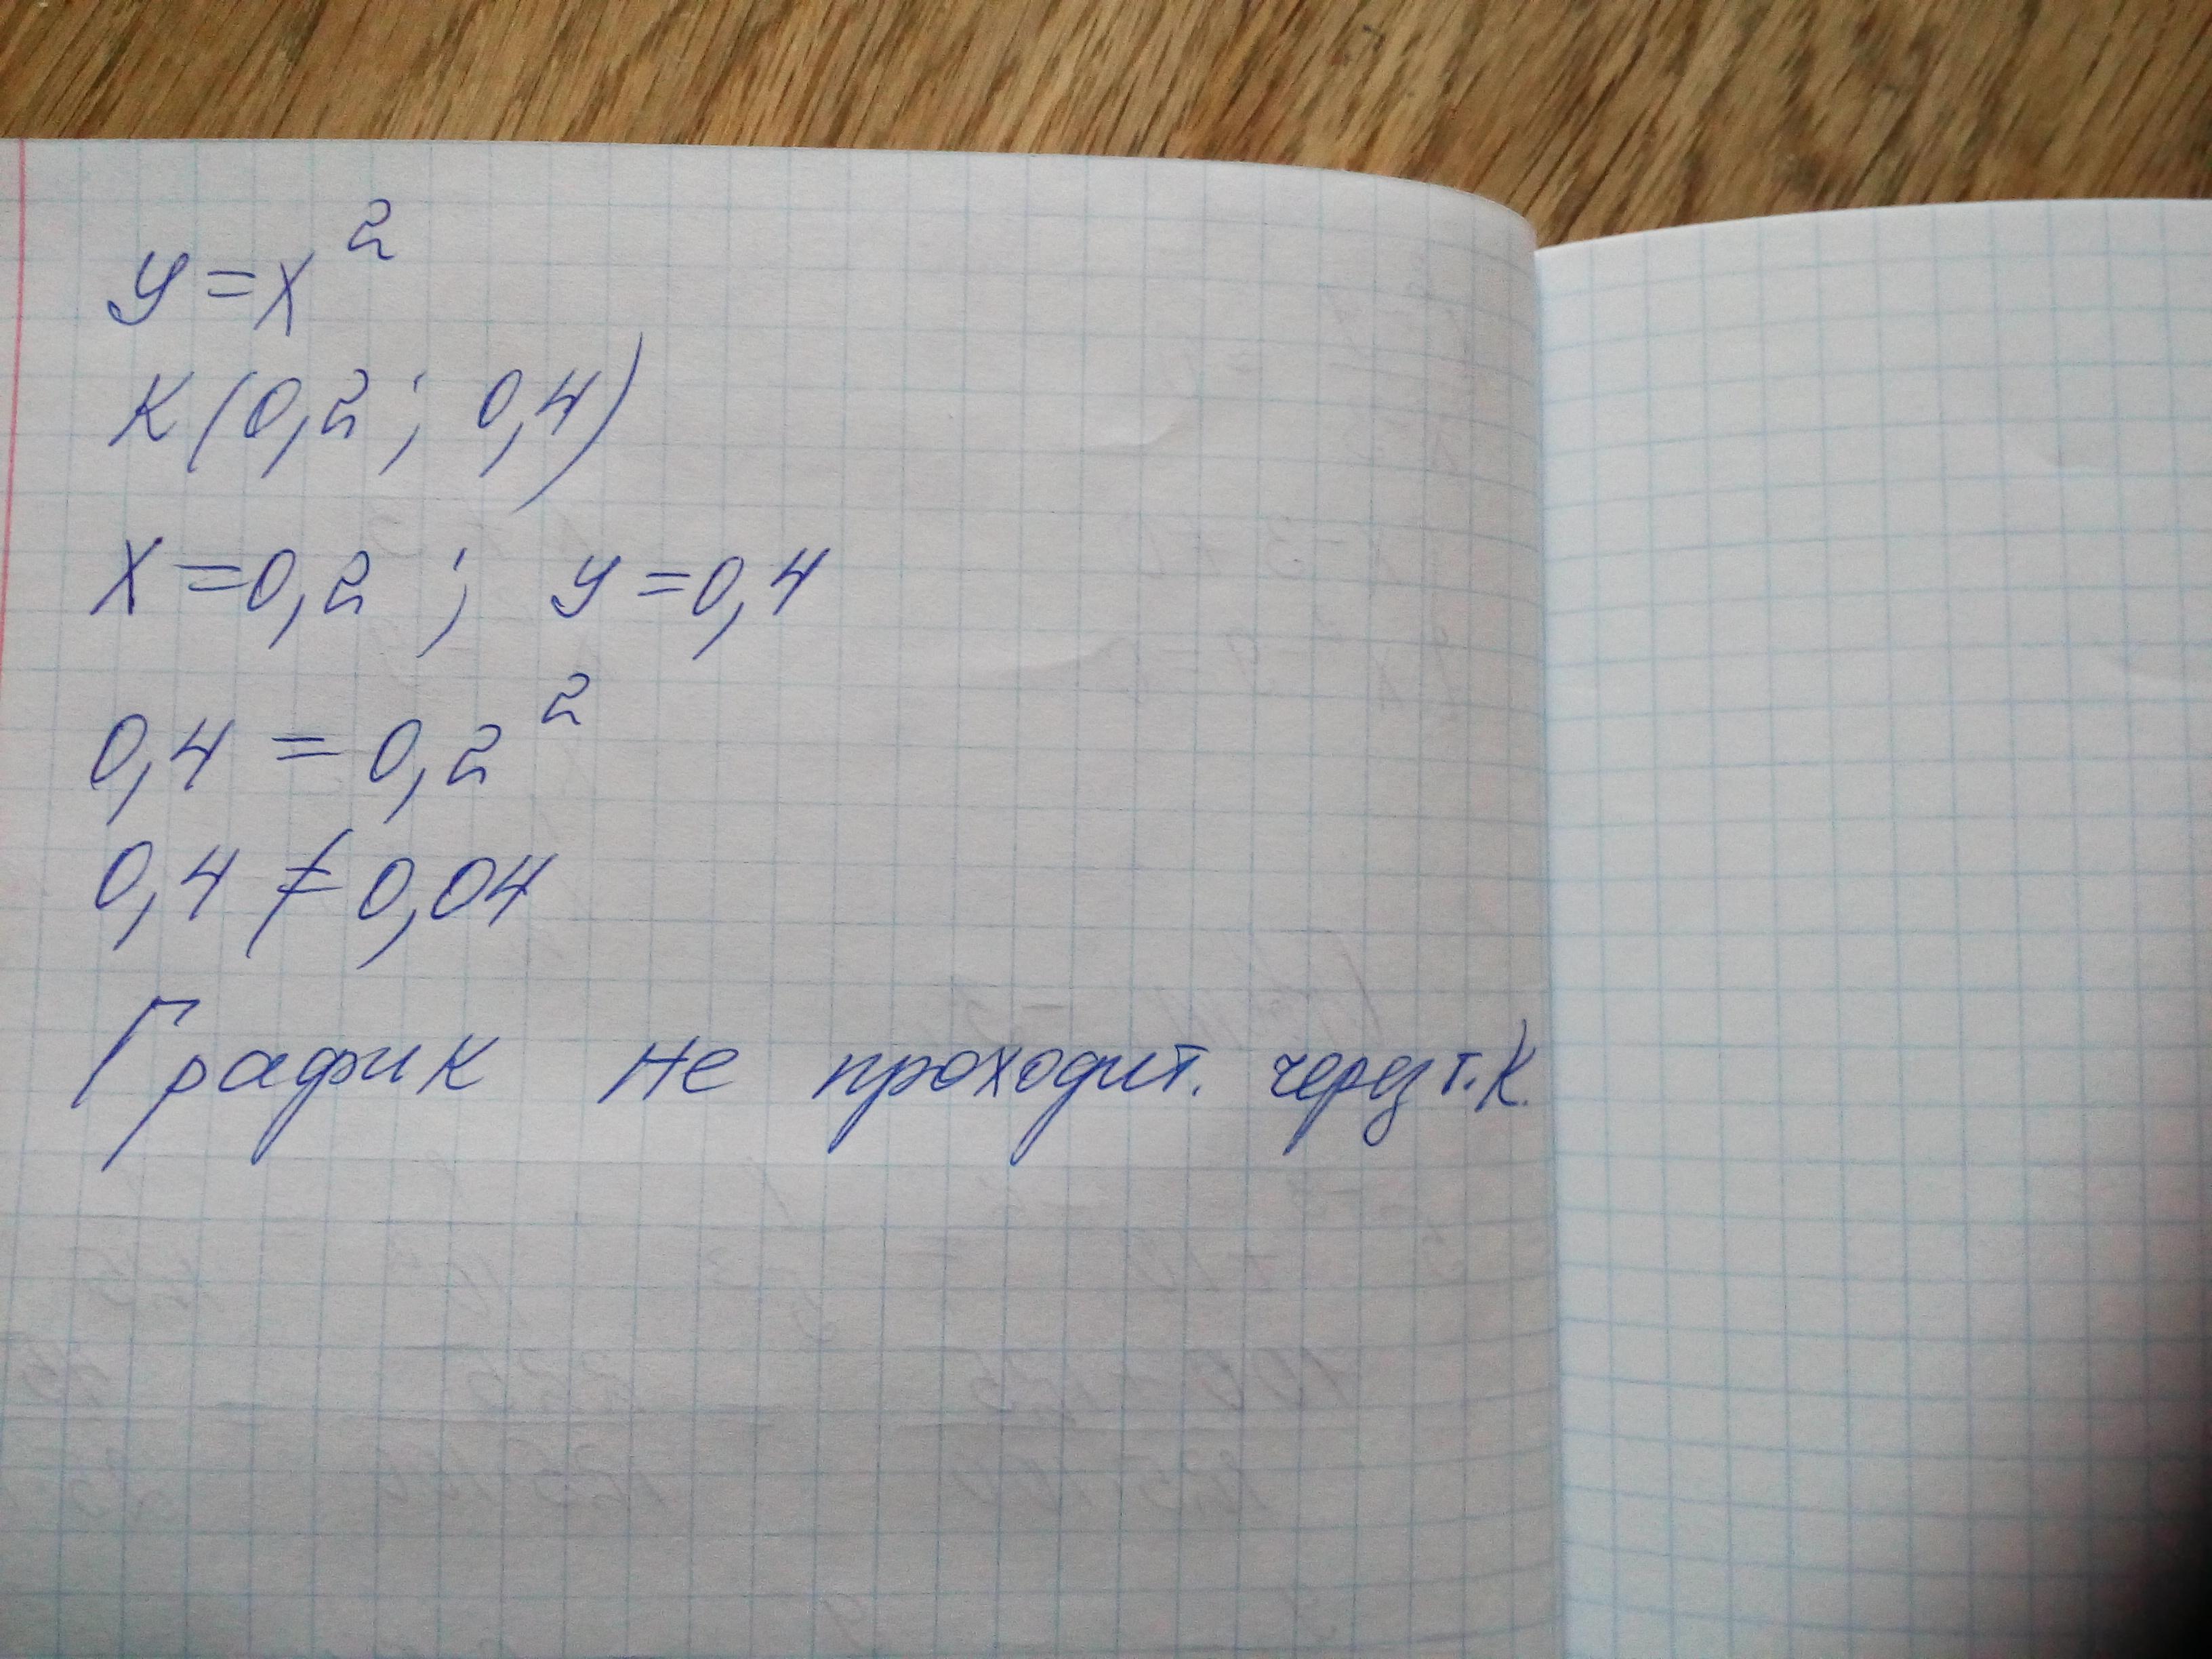 y = x²
K(0,2 ; 0,4)
x = 0,2 ; y = 0,4
0,4 = 0,2²
0,4 ≠ 0,04
График не проходит. через т. К.